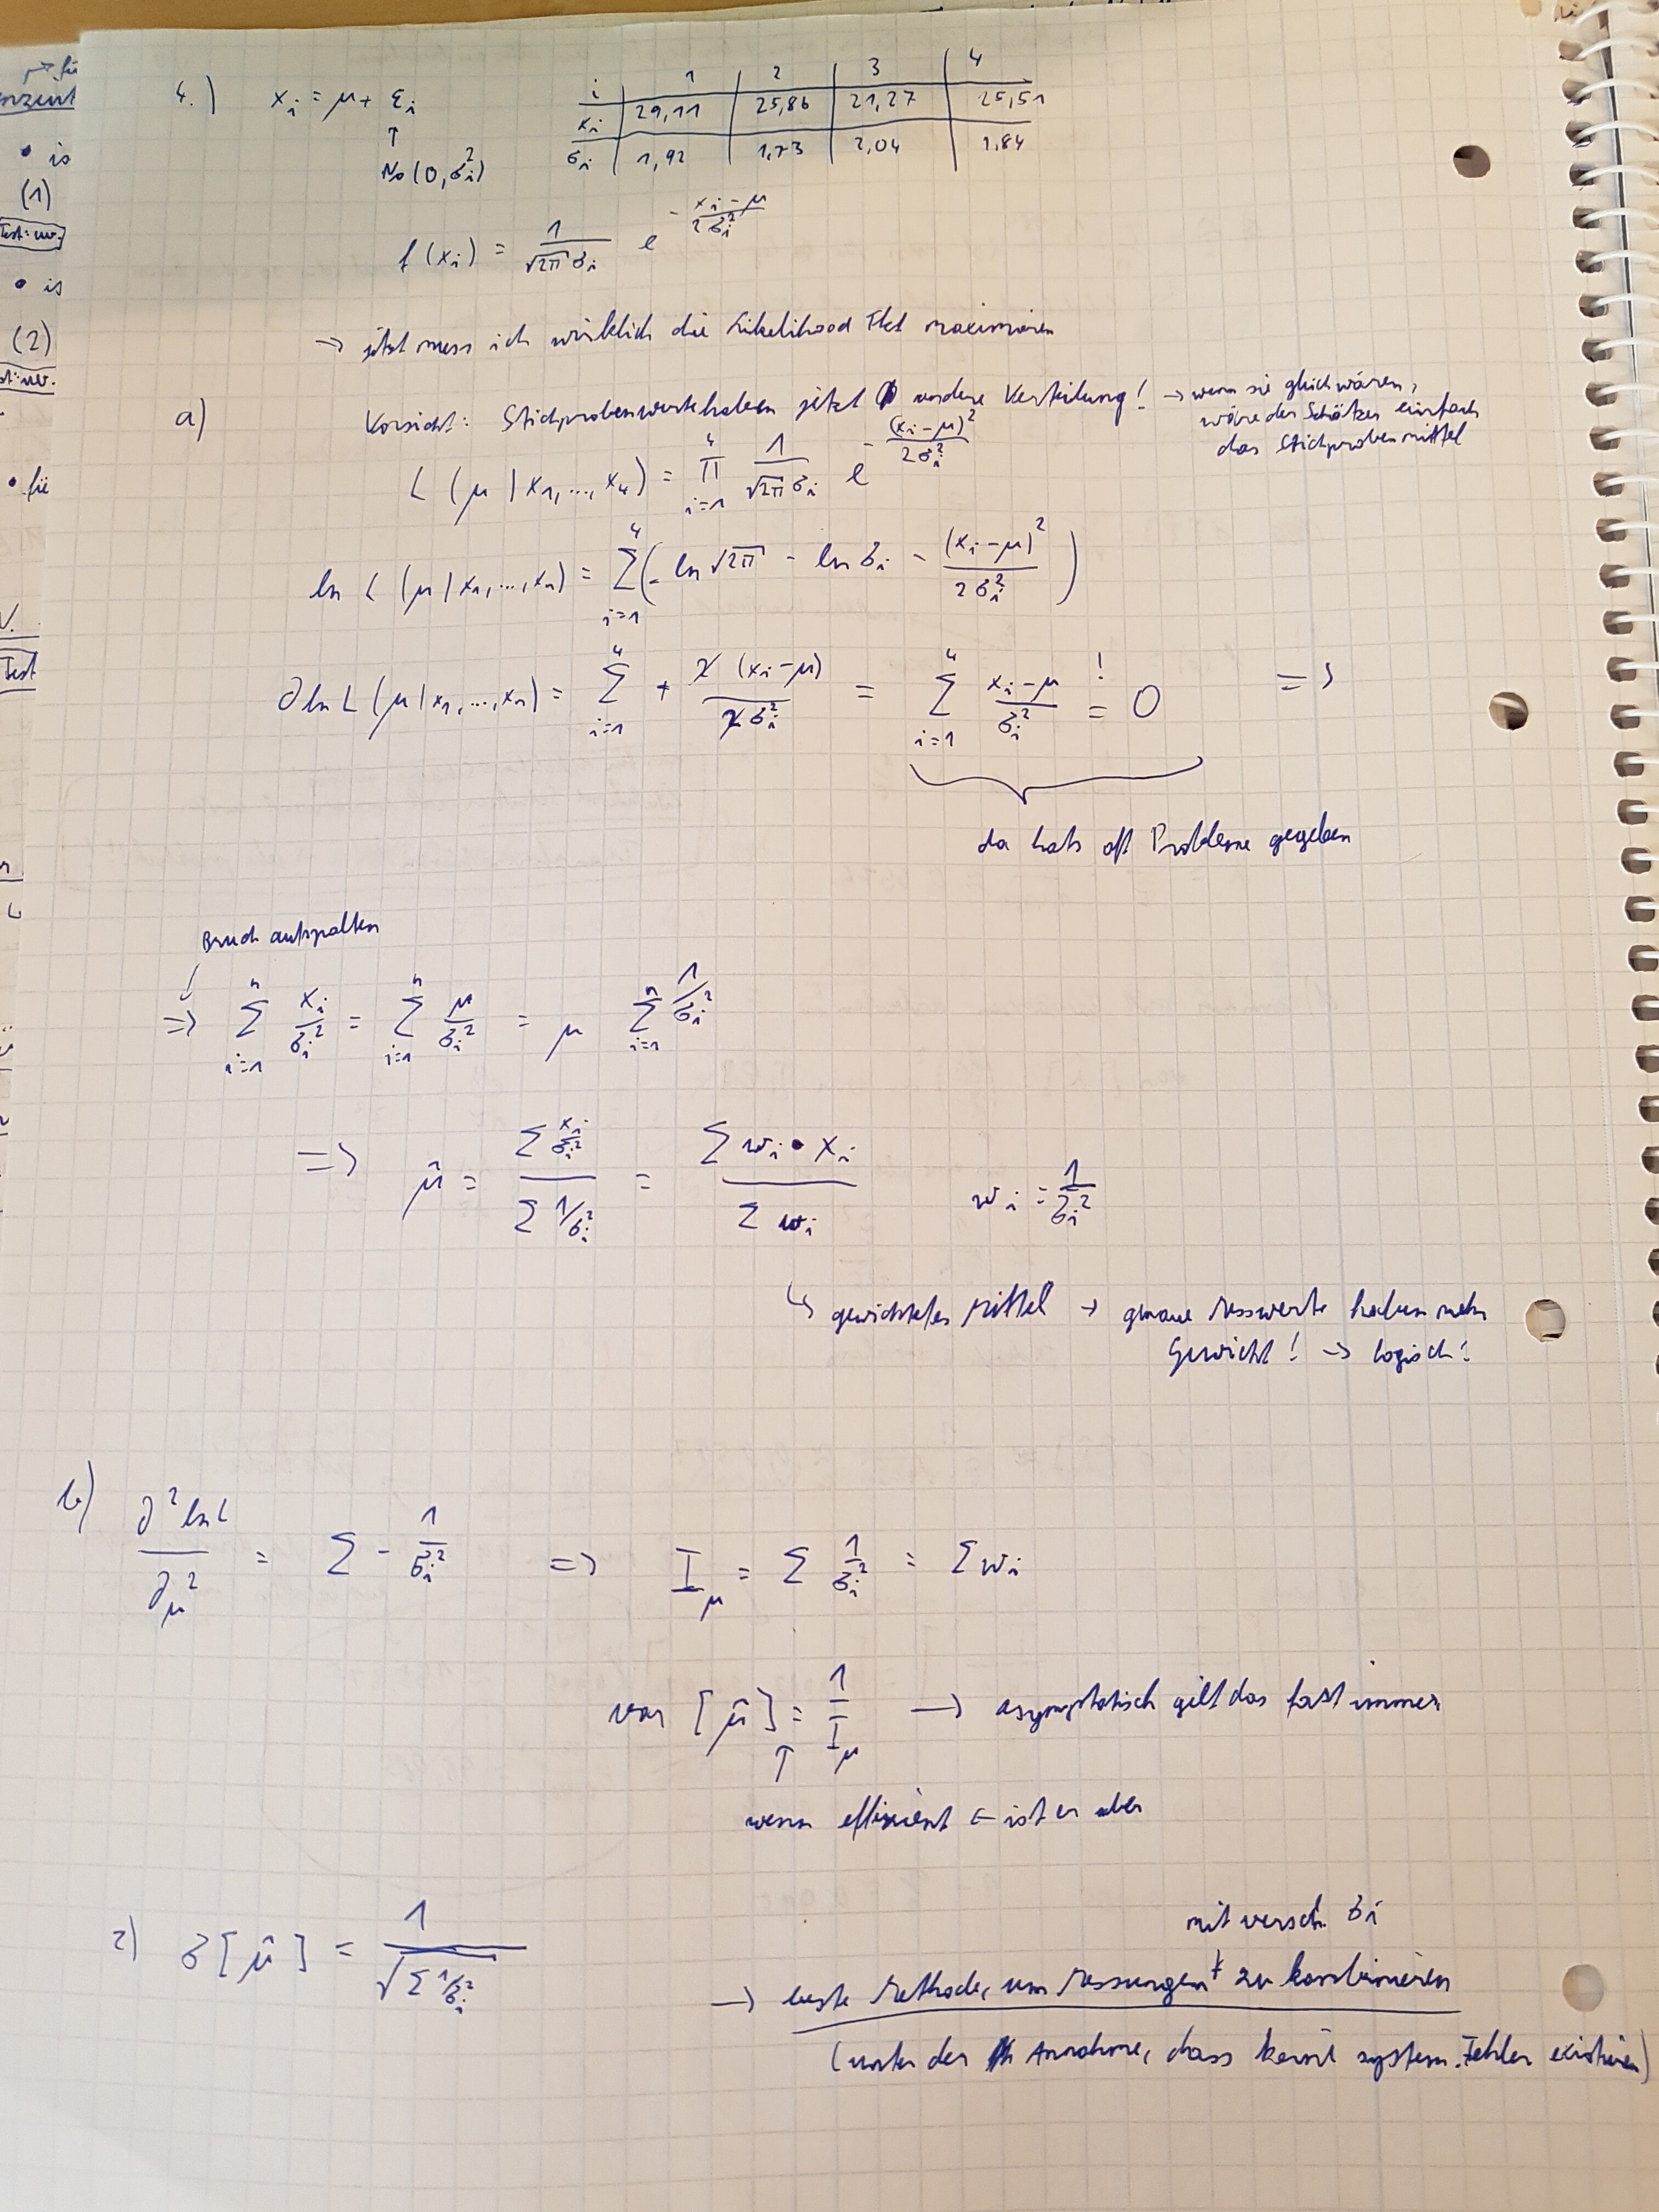 4.) xᵢ = μ + εᵢ
↑
No(0, σᵢ²)
i | 1 | 2 | 3 | 4
xᵢ | 29,11 | 25,86 | 21,27 | 25,51
σᵢ | 1,92 | 1,73 | 2,04 | 1,84
f(xᵢ) = 1/(√2π σᵢ) e^(-(xᵢ-μ)/(2σᵢ²))
→ jetzt muss ich wirklich die Likelihood Fkt maximieren
a) Vorsicht: Stichprobenwerte haben jetzt andere Verteilung! → wenn sie gleich wären,
wäre der Schätzer einfach
das Stichprobenmittel
L (μ | x₁, ..., x₄) = ∏_{i=1}^{4} 1/(√2π σᵢ) e^(-(xᵢ-μ)²/(2σᵢ²))
ln L (μ | x₁, ..., xₙ) = ∑_{i=1}^{4} (- ln √2π - ln σᵢ - (xᵢ-μ)²/(2σᵢ²))
∂ ln L (μ | x₁, ..., xₙ) = ∑_{i=1}^{4} + 2(xᵢ-μ)/(2σᵢ²) = ∑_{i=1}^{4} (xᵢ-μ)/σᵢ² =! 0 =>
da hats oft Probleme gegeben
Bruch aufspalten
↓
=> ∑_{i=1}^{n} xᵢ/σᵢ² = ∑_{i=1}^{n} μ/σᵢ² = μ ∑_{i=1}^{n} 1/σᵢ²
=> μ̂ = (∑ xᵢ/σᵢ²)/(∑ 1/σᵢ²) = (∑ wᵢ • xᵢ)/(∑ wᵢ) wᵢ = 1/σᵢ²
↳ gewichtetes Mittel → genaue Messwerte haben mehr
Gewicht! → logisch!
b) ∂² ln L/∂μ² = ∑ - 1/σᵢ² => I_μ = ∑ 1/σᵢ² = ∑ wᵢ
var [μ̂] = 1/I_μ → asymptotisch gilt das fast immer
↑
wenn effizient ← ist er aber
c) σ[μ̂] = 1/√(∑ 1/σᵢ²)
mit versch. σᵢ
→ beste Methode, um Messungen zu kombinieren
(unter der Annahme, dass keine system. Fehler existieren)
is
(1)
is
(2)